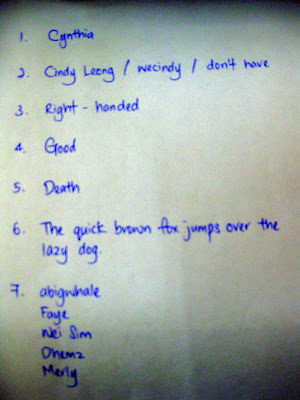 1. Cynthia
2. Cindy Leong / wecindy / don't have
3. Right - handed
4. Good
5. Death
6. The quick brown fox jumps over the
lazy dog.
7. abigwhale
Faye
Wei Sim
Dhemz
Merly